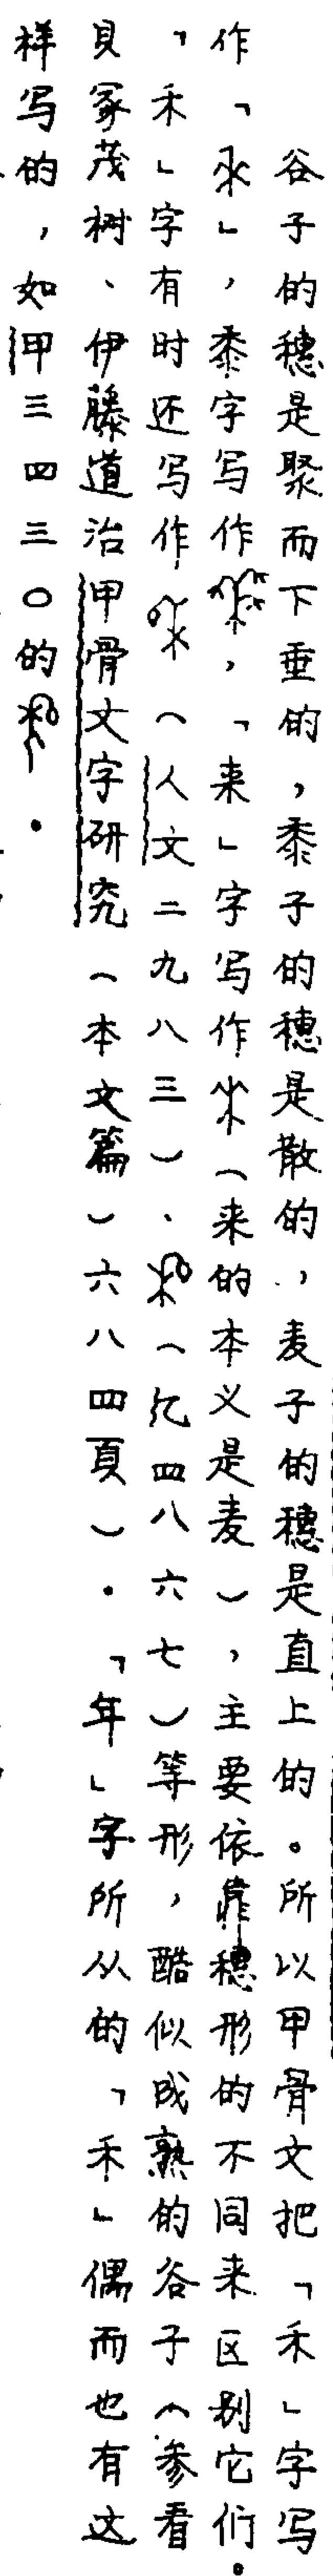 谷子的穗是聚而下垂的，黍子的穗是散的，麦子的穗是直上的。所以甲骨文把「禾」字写
作「」，黍字写作，「来」字写作（来的本义是麦），主要依靠穗形的不同来区别它们。
「禾」字有时还写作（人文二九八三）、（乙四八六七）等形，酷似成熟的谷子（参看
貝冢茂树、伊藤道治甲骨文字研究（本文篇）六八四頁）．「年」字所从的「禾」偶而也有这
样写的，如甲三四三〇的．